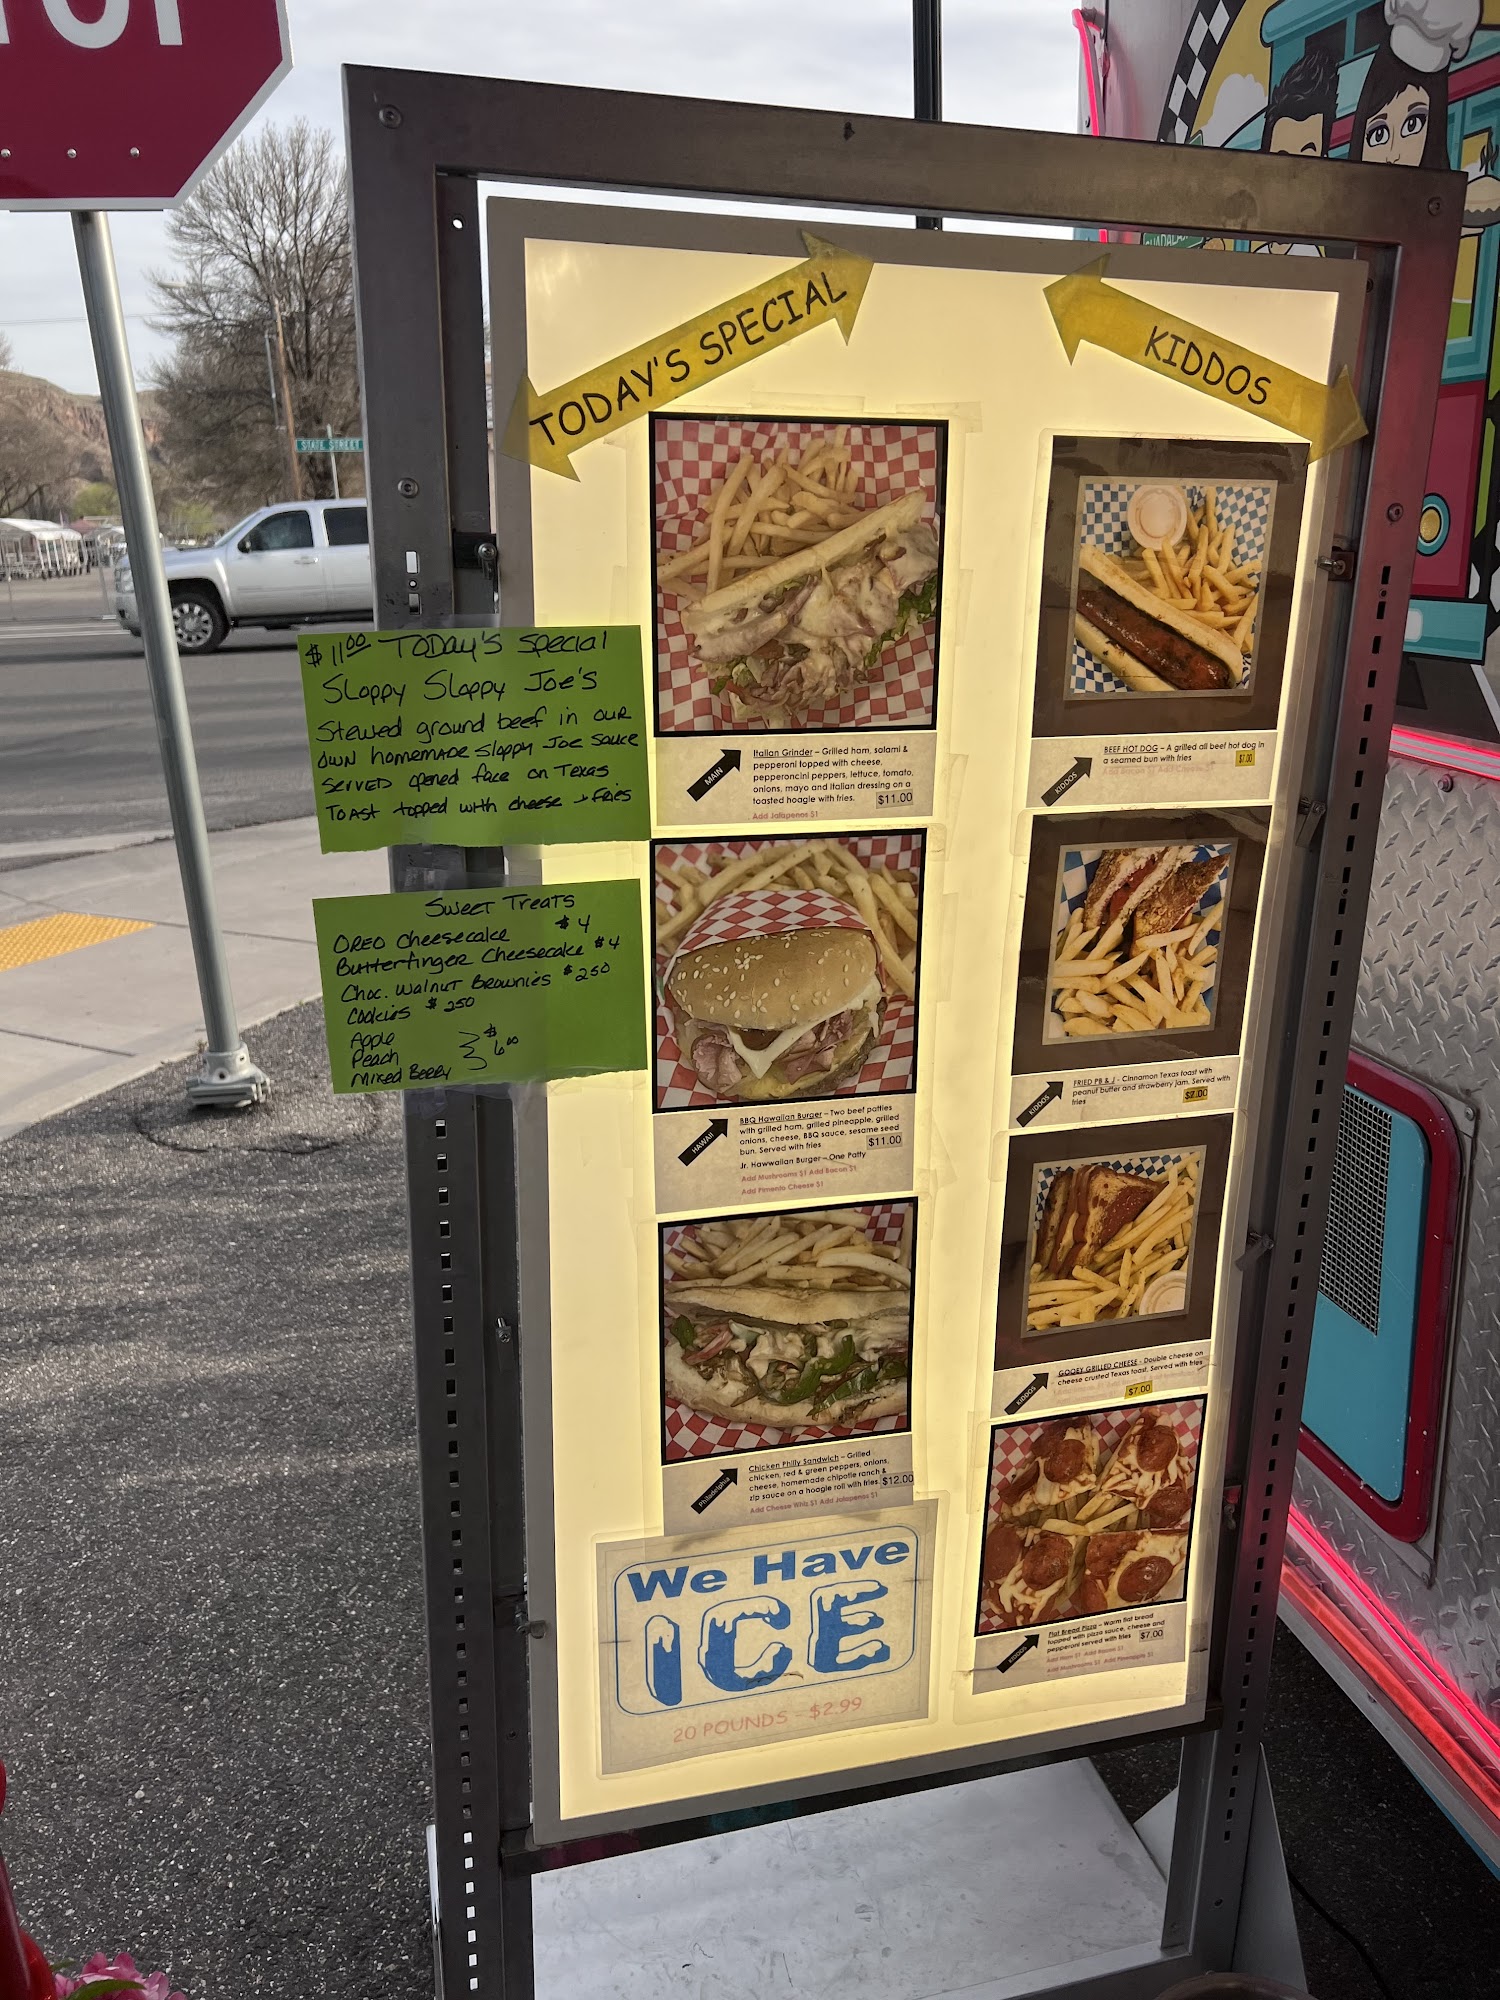 STATE STREET
TODAY'S SPECIAL
KIDDOS
$11.00 TODAY'S Special
Sloppy Sloppy Joe's
Stewed ground beef in our
own homemade sloppy Joe sauce
served opened face on Texas
Toast topped with cheese + fries
Sweet Treats
OREO cheesecake $4
Butterfinger Cheesecake $4
Choc. Walnut Brownies $2.50
Cookies $2.50
Apple
Peach
Mixed Berry
$6.00
MAIN
Italian Grinder – Grilled ham, salami &
pepperoni topped with cheese,
pepperoncini peppers, lettuce, tomato,
onions, mayo and Italian dressing on a
toasted hoagie with fries. $11.00
Add Jalapenos $1
HAWAII
BBQ Hawaiian Burger – Two beef patties
with grilled ham, grilled pineapple, grilled
onions, cheese, BBQ sauce, sesame seed
bun. Served with fries $11.00
Jr. Hawwaiian Burger – One Patty
Add Mushrooms $1 Add Bacon $1
Add Pimento Cheese $1
Philadelphia
Chicken Philly Sandwich – Grilled
chicken, red & green peppers, onions,
cheese, homemade chipotle ranch &
zip sauce on a hoagie roll with fries $12.00
Add Cheese Whiz $1 Add Jalapenos $1
We Have
ICE
20 POUNDS - $2.99
KIDDOS
BEEF HOT DOG – A grilled all beef hot dog in
a seamed bun with fries $7.00
KIDDOS
FRIED PB & J - Cinnamon Texas toast with
peanut butter and strawberry jam. Served with
fries $7.00
KIDDOS
GOOEY GRILLED CHEESE - Double cheese on
cheese crusted Texas toast. Served with fries
$7.00
KIDDOS
Flat Bread Pizza – Warm flat bread
topped with pizza sauce, cheese and
pepperoni served with fries $7.00
Add Ham $1 Add Bacon $1
Add Mushrooms $1 Add Pineapple $1